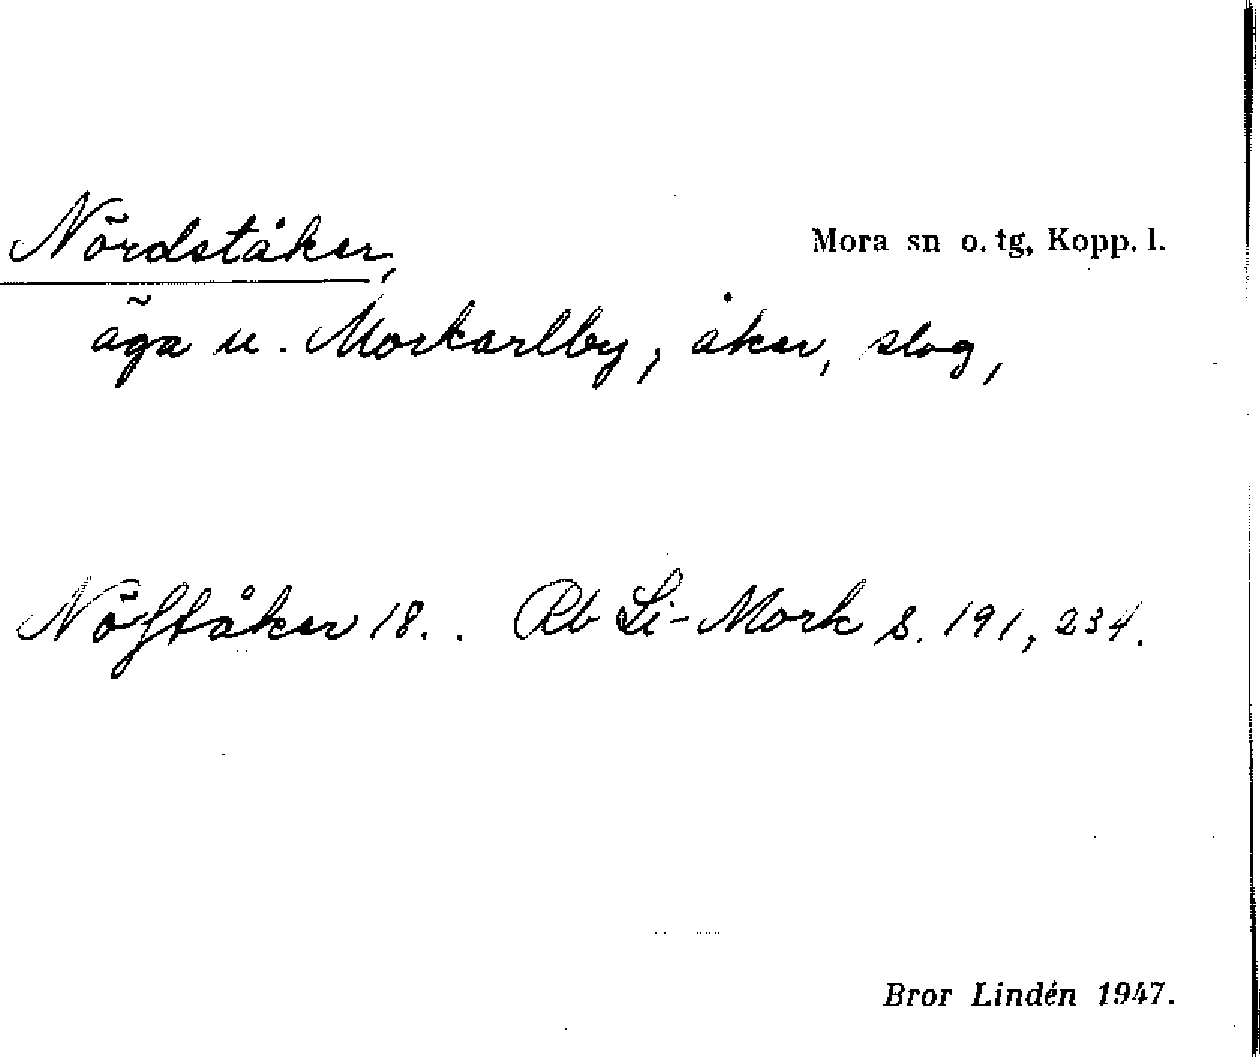 Nördståker,
Mora sn o. tg, Kopp. l.
äga u. Morkarlby, åker, slog,
Nöſståker 18.. Rb Li-Mork s. 191, 234.
Bror Lindén 1947.